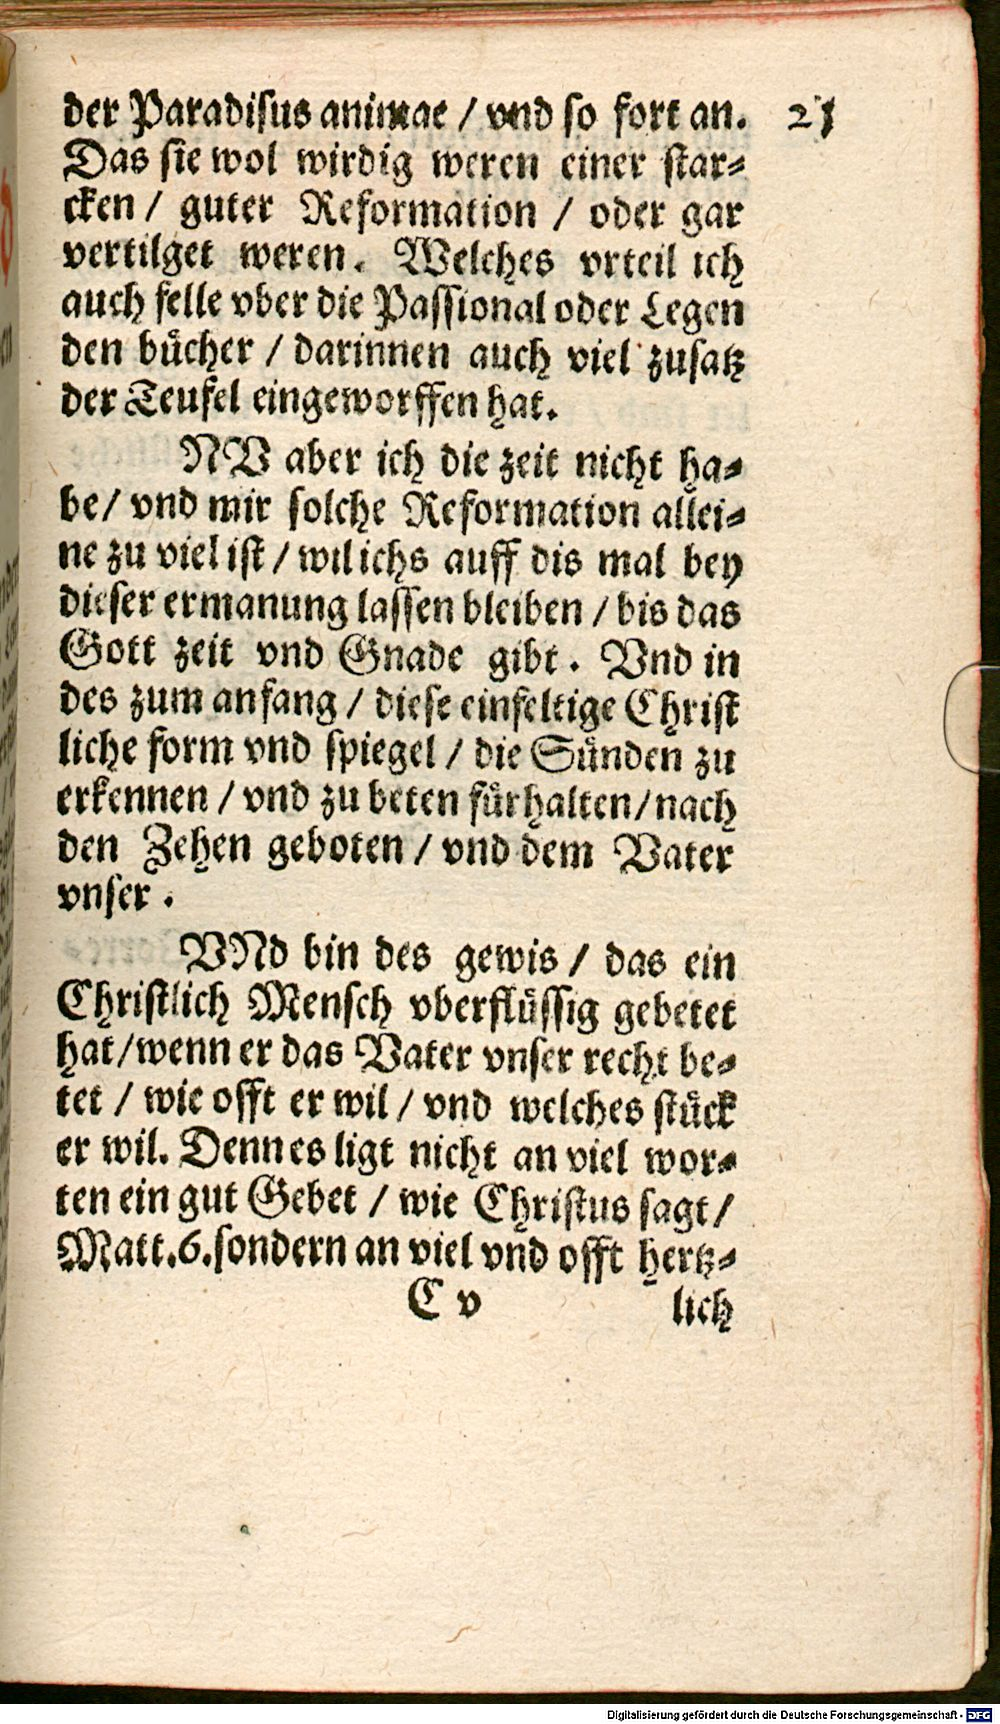 der Paradisus animae / vnd so fort an. 25
Das sie wol wirdig weren einer star⸗
cken / guter Reformation / oder gar
vertilget weren. Welches vrteil ich
auch felle vber die Passional oder Legen
den bücher / darinnen auch viel zusatz
der Teufel eingeworffen hat.
NV aber ich die zeit nicht ha⸗
be / vnd mir solche Reformation allei⸗
ne zu viel ist / wil ichs auff dis mal bey
dieser ermanung lassen bleiben / bis das
Gott zeit vnd Gnade gibt. Vnd in
des zum anfang / diese einfeltige Christ
liche form vnd spiegel / die Sünden zu
erkennen / vnd zu beten fürhalten / nach
den Zehen geboten / vnd dem Vater
vnser.
VNd bin des gewis / das ein
Christlich Mensch vberflüssig gebetet
hat / wenn er das Vater vnser recht be⸗
tet / wie offt er wil / vnd welches stück
er wil. Denn es ligt nicht an viel wor⸗
ten ein gut Gebet / wie Christus sagt /
Matt. 6. sondern an viel vnd offt hertz⸗
C v lich
Digitalisierung gefördert durch die Deutsche Forschungsgemeinschaft - DFG